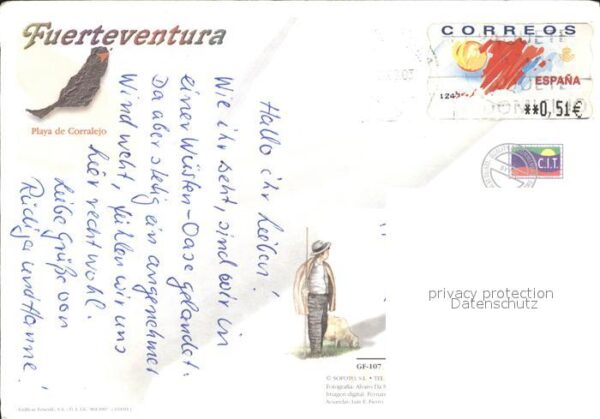 Fuerteventura
Playa de Corralejo
CORREOS
ESPAÑA
**0,51€
C.I.T.
Hallo ihr Lieben!
Wie ihr seht, sind wir in
einer Wüsten-Oase gelandet.
Da aber stetig ein angenehmer
Wind weht, fühlen wir uns
hier recht wohl.
Liebe Grüße von
Rüdiger und Hanne!
privacy protection
Datenschutz
GF-107
© SOPOTO, S.L. • TEL.
Imagen digital:
Acuarelas: Luis F. Fierro